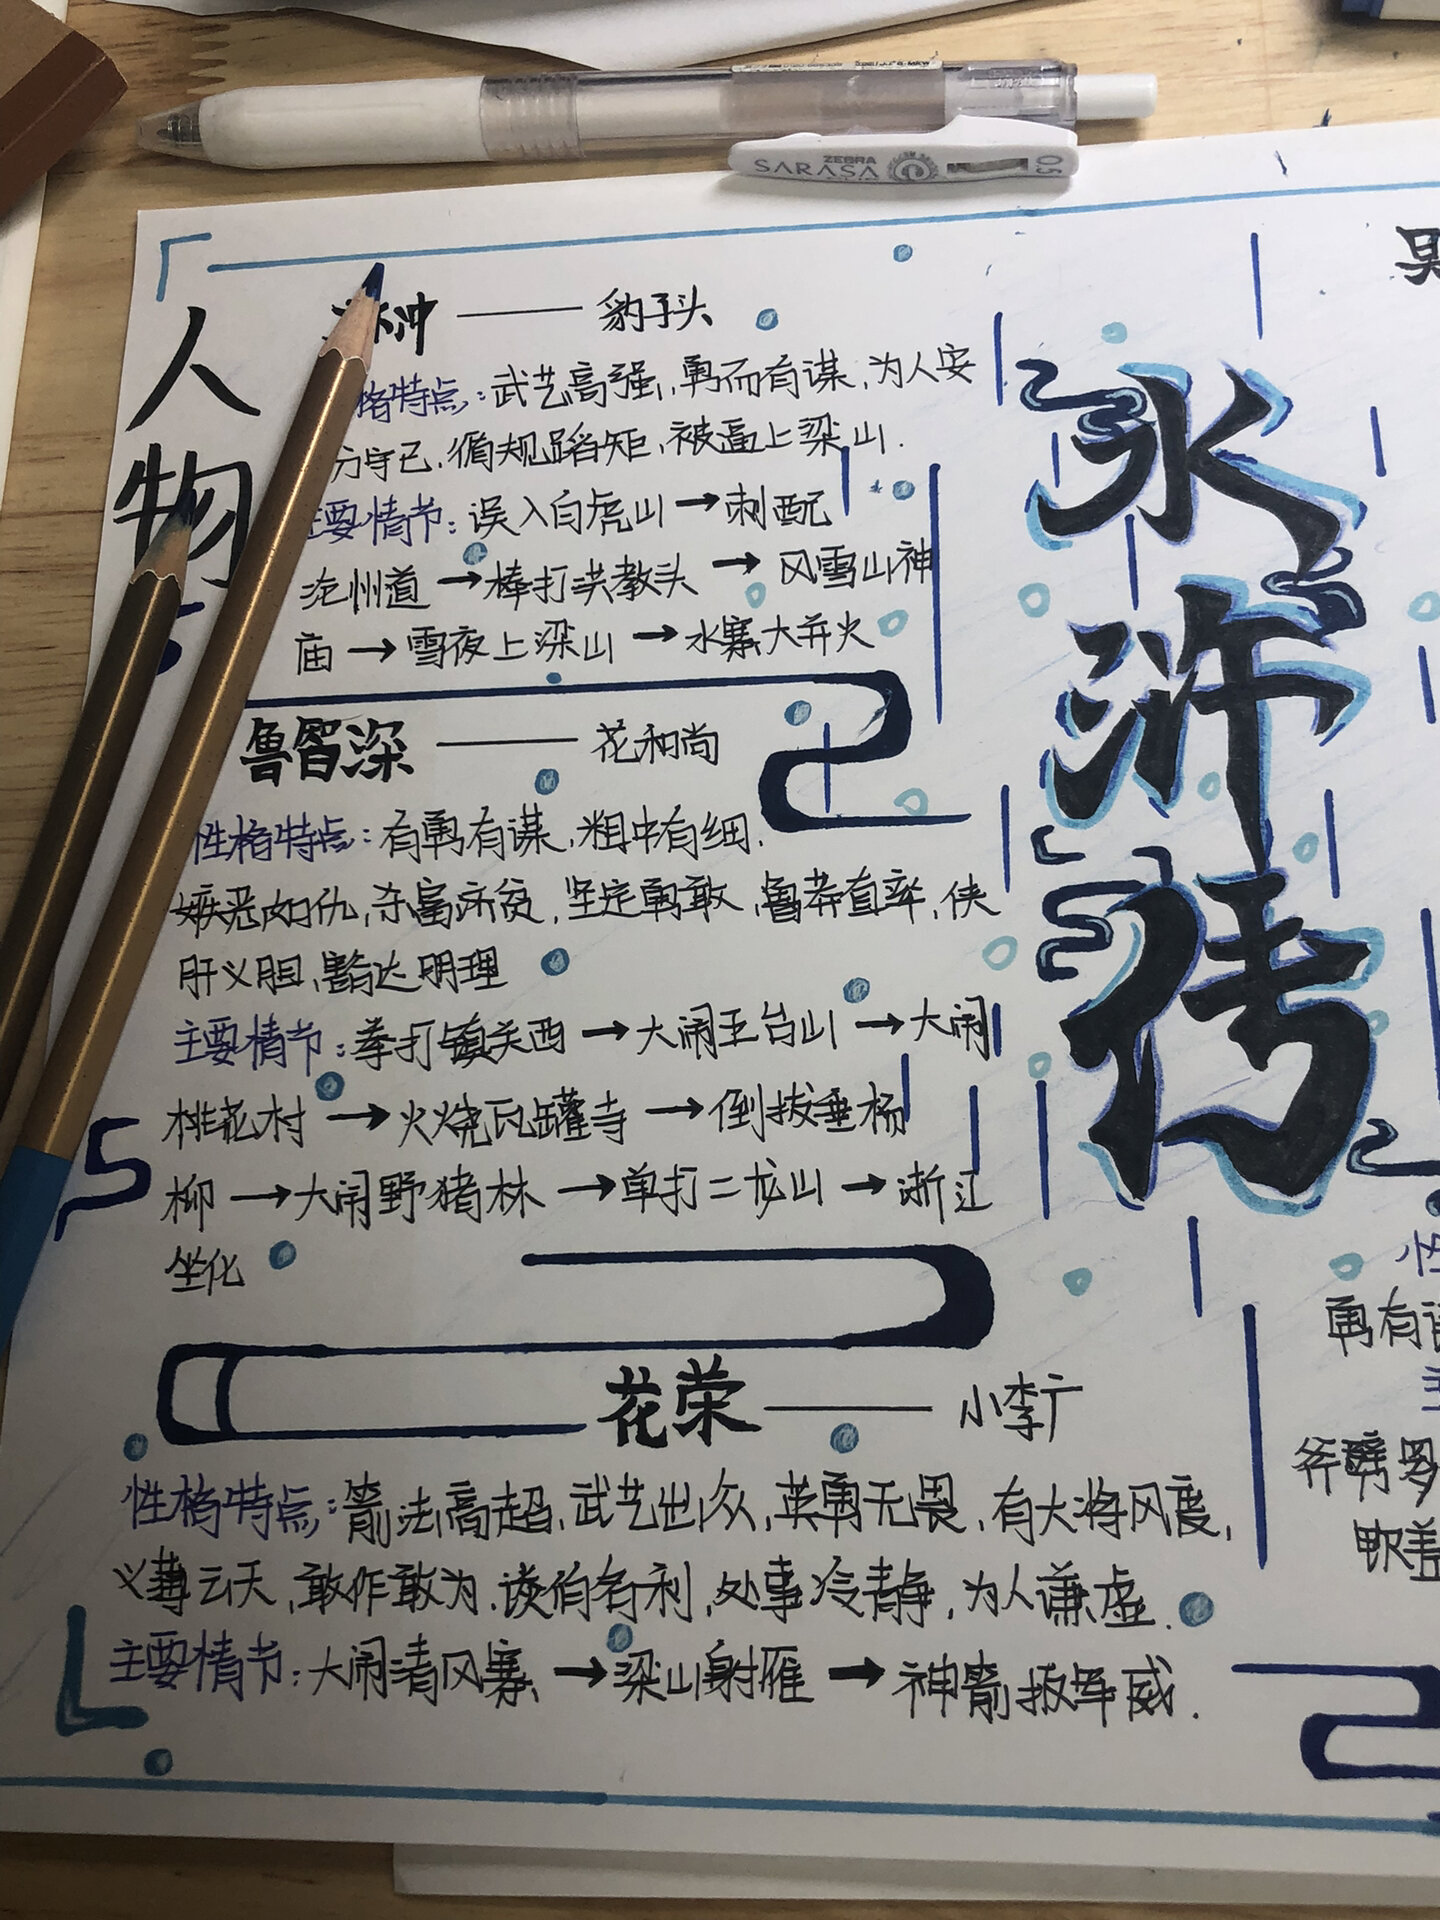 ZEBRA
SARASA
0.5
人
物
冲 —— 豹子头
格特点：武艺高强，勇而有谋，为人安
分守己，循规蹈矩，被逼上梁山.
主要情节：误入白虎山→刺配
沧州道→棒打洪教头→风雪山神
庙→雪夜上梁山→水寨大并火
鲁智深 —— 花和尚
性格特点：有勇有谋，粗中有细.
嫉恶如仇，杀富济贫，坚定勇敢，鲁莽直率，侠
肝义胆，豁达明理
主要情节：拳打镇关西→大闹五台山→大闹
桃花村→火烧瓦罐寺→倒拔垂杨
柳→大闹野猪林→单打二龙山→浙江
坐化
花荣 —— 小李广
性格特点：箭法高超，武艺出众，英勇无畏，有大将风度，
义薄云天，敢作敢为，淡泊名利，处事冷静，为人谦虚.
主要情节：大闹清风寨→梁山射雁→神箭扬军威.
水
浒
传
吴
性
勇有谋
主
斧劈罗